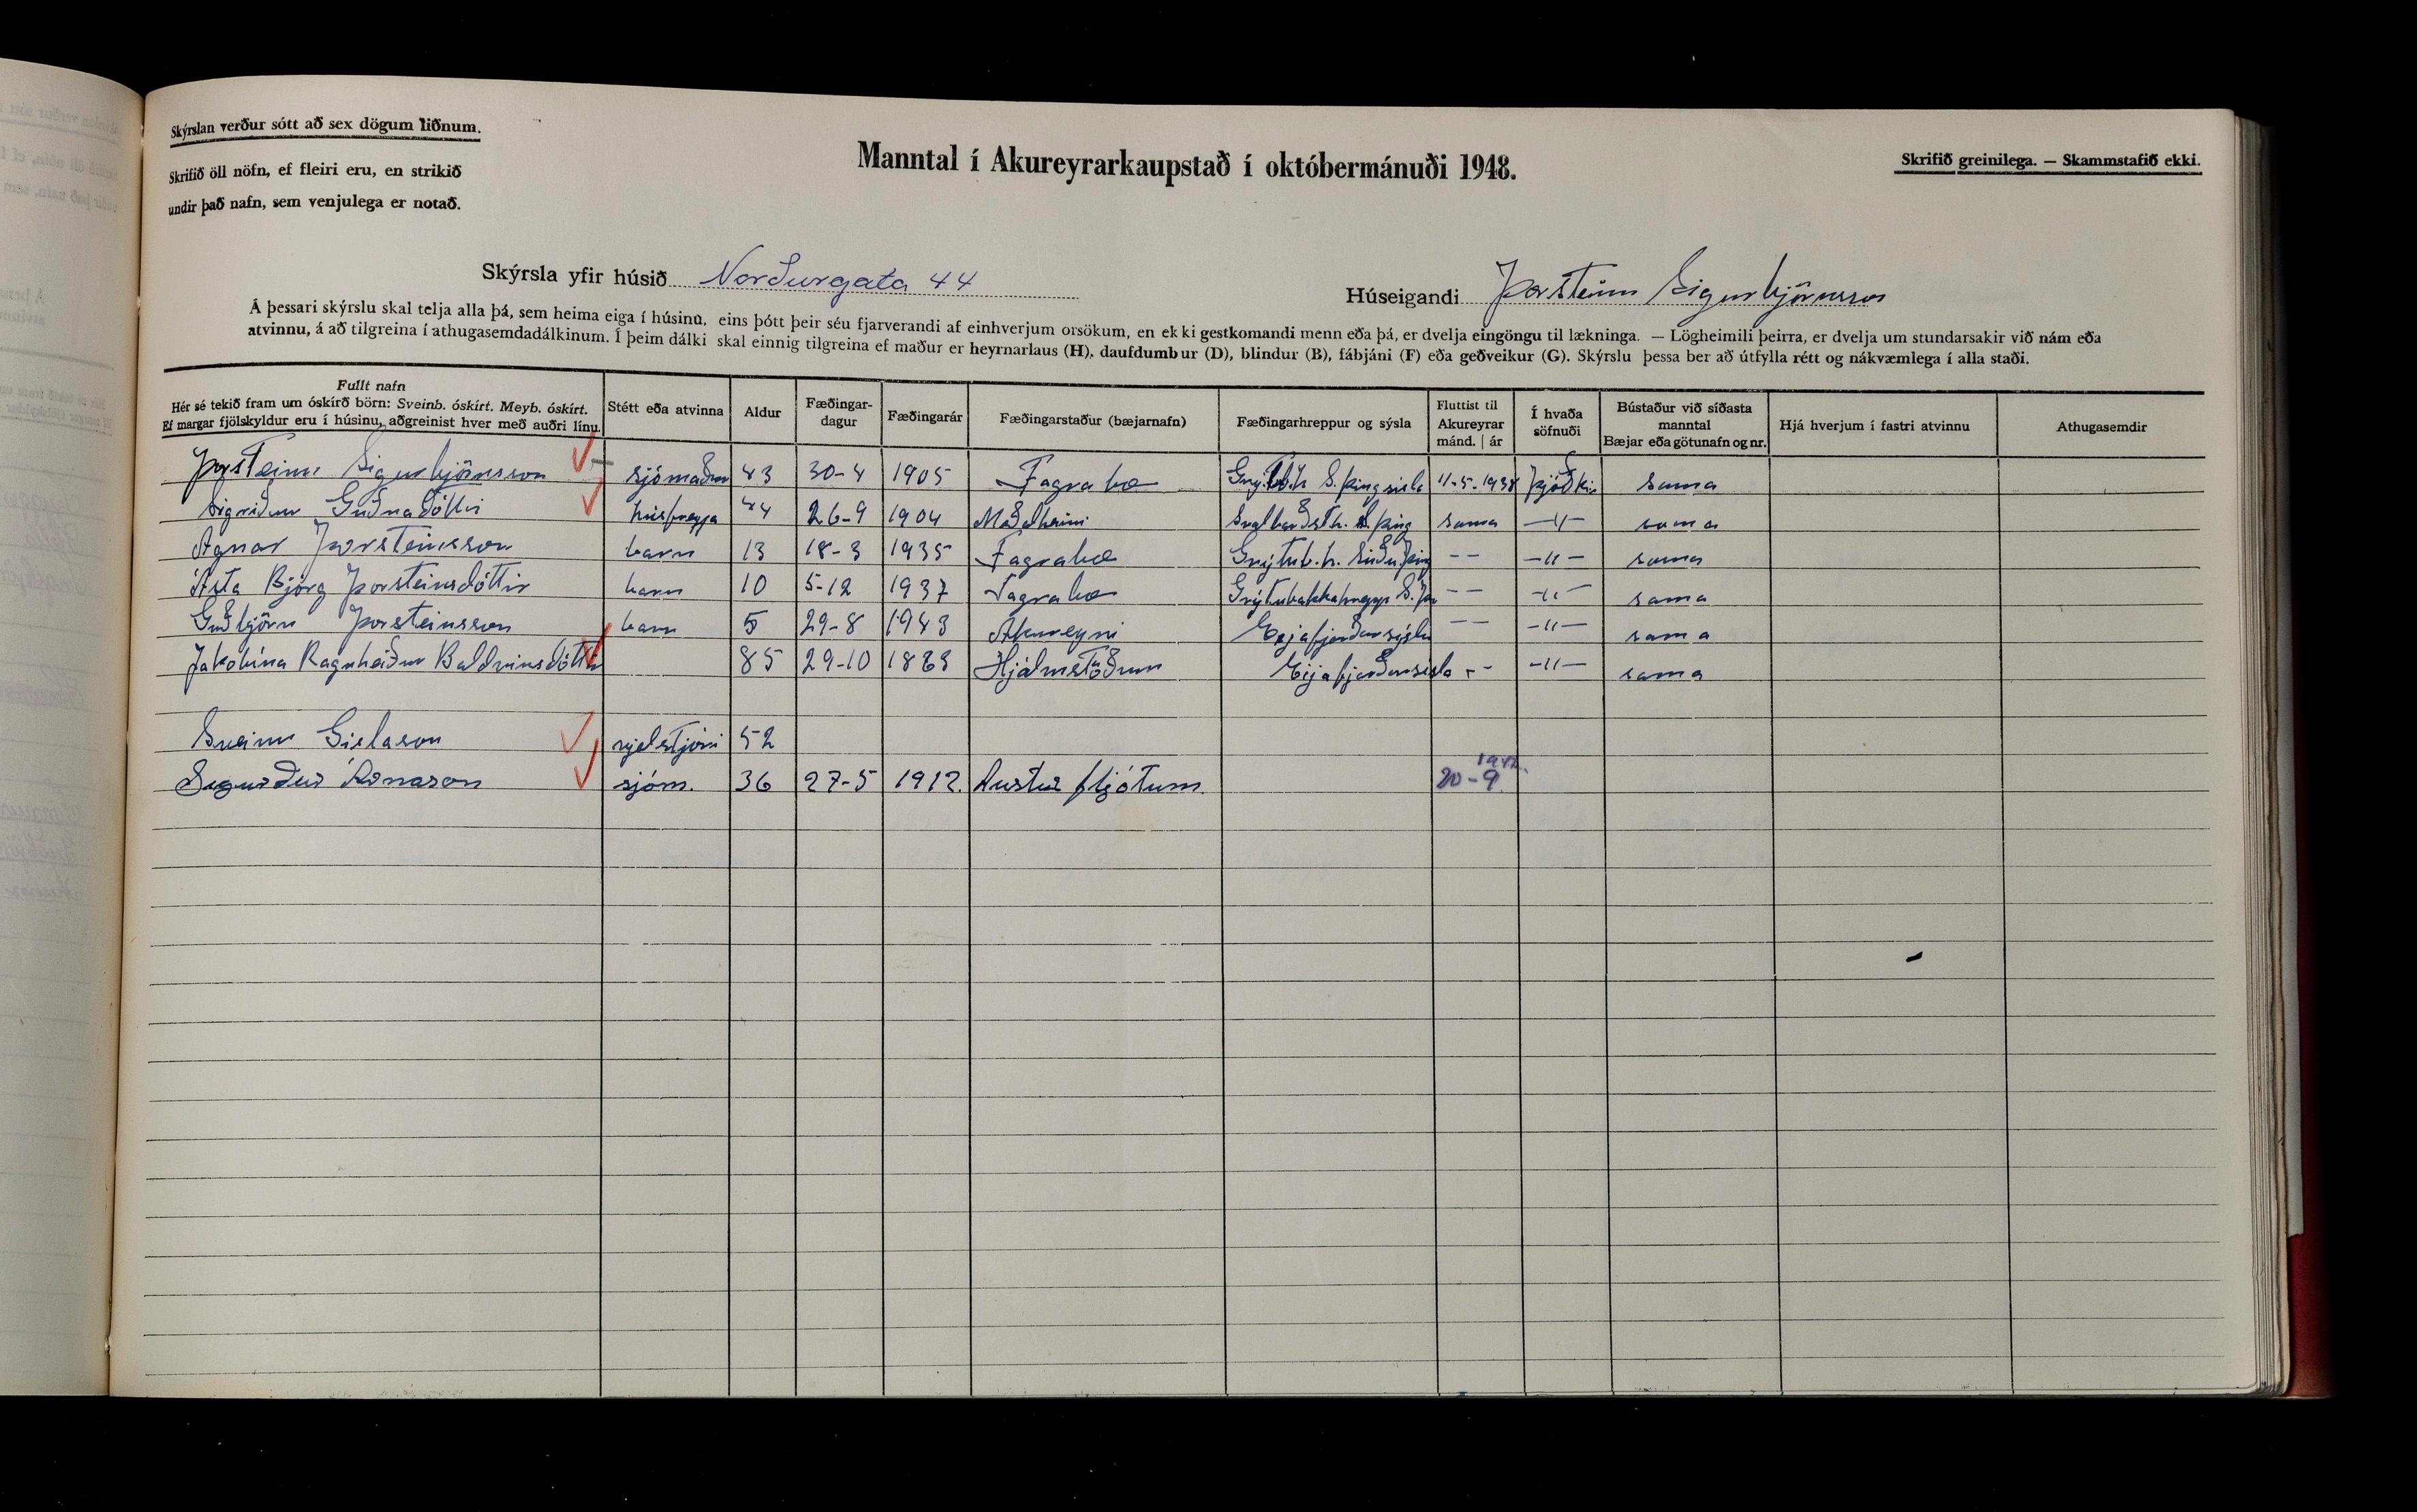 Skýrslan verður sótt að sex dögum liðnum.
Skrifið öll nöfn, ef fleiri eru, en strikið
undir það nafn, sem venjulega er notað.
Manntal í Akureyrarkaupstað í októbermánuði 1948.
Skrifið greinilega. — Skammstafið ekki.
Skýrsla yfir húsið Norðurgata 44
Húseigandi Þorsteinn Sigurbjörnsson
Á þessari skýrslu skal telja alla þá, sem heima eiga í húsinu, eins þótt þeir séu fjarverandi af einhverjum orsökum, en ekki gestkomandi menn eða þá, er dvelja eingöngu til lækninga. — Lögheimili þeirra, er dvelja um stundarsakir við nám eða
atvinnu, á að tilgreina í athugasemdadálkinum. Í þeim dálki skal einnig tilgreina ef maður er heyrnarlaus (H), daufdumbur (D), blindur (B), fábjáni (F) eða geðveikur (G). Skýrslu þessa ber að útfylla rétt og nákvæmlega í alla staði.
Fullt nafn
Hér sé tekið fram um óskírð börn: Sveinb. óskírt. Meyb. óskírt.
Ef margar fjölskyldur eru í húsinu, aðgreinist hver með auðri línu.
Stétt eða atvinna
Aldur
Fæðingar-
dagur
Fæðingarár
Fæðingarstaður (bæjarnafn)
Fæðingarhreppur og sýsla
Fluttist til
Akureyrar
mánd. | ár
Í hvaða
söfnuði
Bústaður við síðasta
manntal
Bæjar eða götunafn og nr.
Hjá hverjum í fastri atvinnu
Athugasemdir
Þorsteinn Sigurbjörnsson sjómaður 43 30-4 1905 Fagrabæ S. þingsisla 11-5-1938 Þjóðkir sama
Sigriður Guðnadóttir húsfreyja 44 26-9 1904 Meðalheimi Svalbarðsth. S. þing sama —〃— sama
Agnar Þorsteinsson barn 13 18-3 1935 Fagrabæ Grýtub.h. Suður.þing — — —〃— sama
Ásta Björg Þorsteinsdóttir barn 10 5-12 1937 Fagrabæ Grýtubakkahrepp S. Þin — — —〃— sama
Guðbjörn Þorsteinsson barn 5 29-8 1943 Akureyri Eyjafjarðarsýsla — — —〃— sama
Jakobína Ragnheiður Baldvinsdóttir 85 29-10 1863 Hjálmstöðum Eyjafjarðarsisla - - —〃— sama
Sveinn Gislason 52
Sigurður Árnason sjóm. 36 27-5 1912. Austur fljótum. 20-9